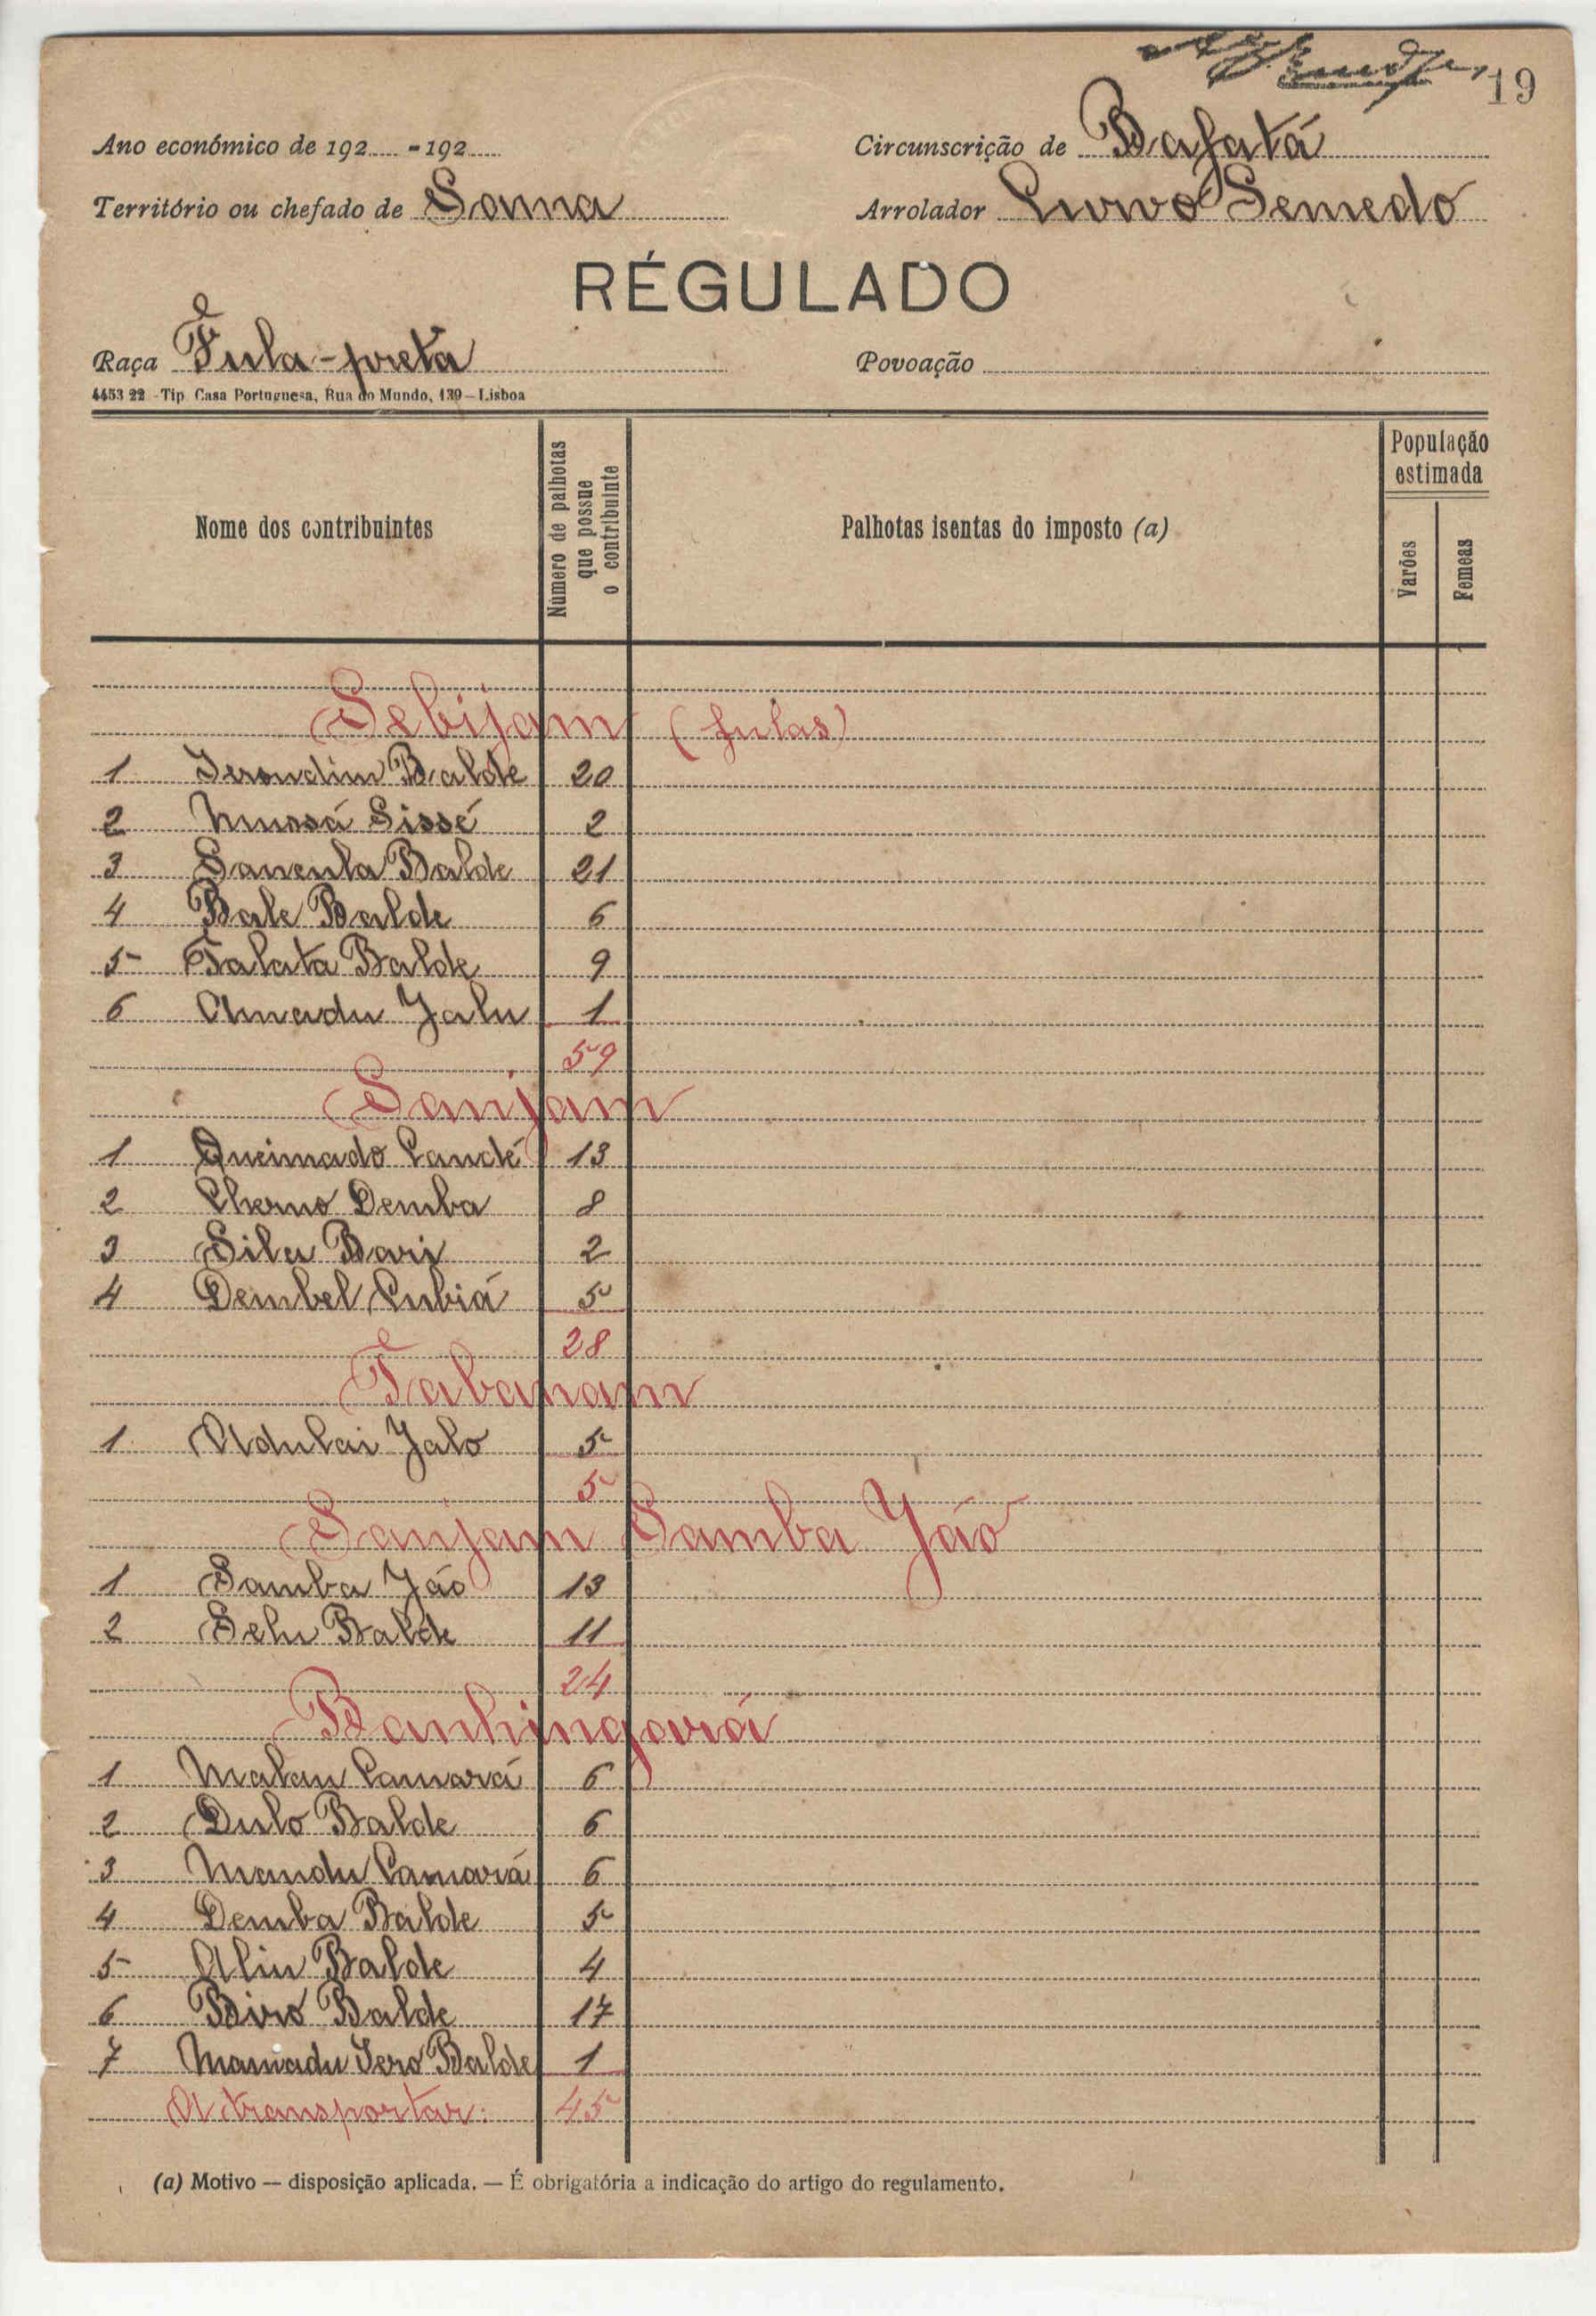 19
Ano económico de 192 - 192
Circunscrição de Bafatá
Território ou chefado de Sama
Arrolador Livivo Semedo
RÉGULADO
Raça Fula-preta
Povoação
4453 22 - Tip. Casa Portuguesa, Rua do Mundo, 139 - Lisboa
Nome dos contribuintes
Número de palhotas que possue o contribuinte
Palhotas isentas do imposto (a)
População estimada
Varões
Femeas
Sebijam (fulas)
1 Balde 20
2 Mussá Sissé 2
3 Balde 21
4 Bale Balde 6
5 Talata Balde 9
6 Amadu Jalu 1
59
Sanjam
1 Queimado Candé 13
2 Cherno Demba 8
3 Sila Bari 2
4 Dembel Cubiá 5
28
Tabanam
1 Adulai Jalo 5
5
Sanjam Samba Jáo
1 Samba Jáo 13
2 Selu Balde 11
24
1 Malan Camará 6
2 Dulo Balde 6
3 Mandu Camará 6
4 Demba Balde 5
5 Aliu Balde 4
6 Biró Balde 17
7 Mamadu Sero Balde 1
A transportar: 45
(a) Motivo — disposição aplicada. — É obrigatória a indicação do artigo do regulamento.